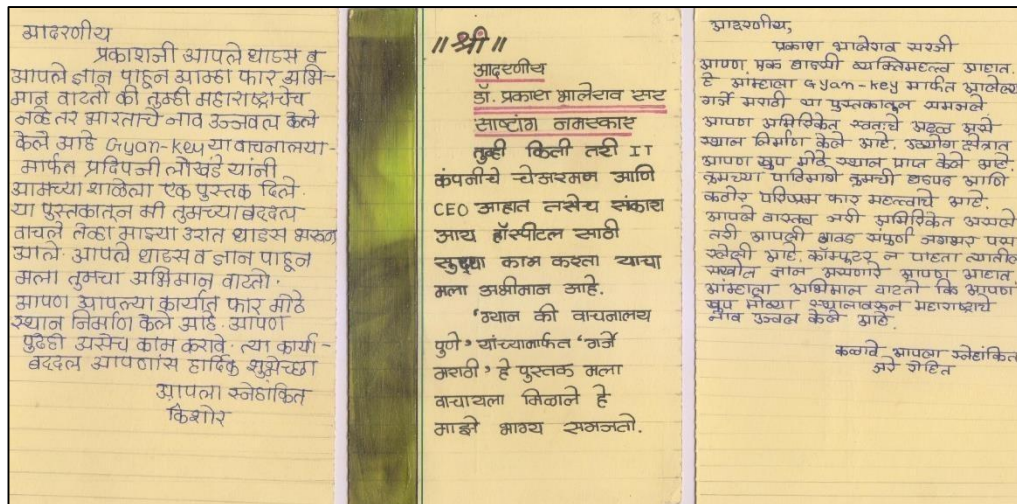 आदरणीय
प्रकाशजी आपले धाडस व
आपले ज्ञान पाहून आम्हा फार अभि-
मान वाटतो की तुम्ही महाराष्ट्राचेच
नव्हे तर भारताचे नाव उज्जवल केले
केले आहे Gyan-Key या वाचनालया-
मार्फत प्रदिपजी लोखंडे यांनी
आमच्या शाळेला एक पुस्तक दिले.
या पुस्तकातून मी तुमच्याबददल
वाचले तेव्हा माझ्या उरात धाडस भरून
आले. आपले धाडस व ज्ञान पाहून
मला तुमचा अभिमान वाटतो.
आपण आपल्या कार्यात फार मोठे
स्थान निर्माण केले आहे. आपण
पुढेही असेच काम करावे. त्या कार्या-
बददल आपणांस हार्दिक शुभेच्छा
आपला स्नेहांकित
किशोर
॥ श्री ॥
आदरणीय
डॉ. प्रकाश भालेराव सर
साष्टांग नमस्कार
तुम्ही किती तरी IT
कंपनीचे चेअरमन आणि
CEO आहात तसेच संकाश
आय हॉस्पीटल साठी
सुद्धा काम करता याचा
मला अभीमान आहे.
'ग्यान की वाचनालय
पुणे' यांच्यामार्फत 'गर्जे
मराठी' हे पुस्तक मला
वाचायला मिळाले हे
माझे भाग्य समजतो.
आदरणीय,
प्रकाश भालेराव सरजी
आपण एक धाडसी व्यक्तिमहत्त्व आहात.
हे आम्हाला Gyan-key मार्फत आलेल्या
गर्जे मराठी या पुस्तकातून समजले
आपण अमेरिकेत स्वतःचे अढळ असे
स्थान निर्माण केले आहे. उद्योग क्षेत्रात
आपण खुप मोठे स्थान प्राप्त केले आहे.
तुमच्या पाठिमागे तुमची धडपड आणि
कठोर परिश्रम फार महत्वाचे आहे.
आपले वास्तव्य जरी अमेरिकेत असले
तरी आपली आवड संपुर्ण जगभर पस
रलेली आहे. कॉम्प्युटर न पाहता त्यातील
सखोल ज्ञान असणारे आपण आहात
आंम्हाला अभिमान वाटतो कि आपण
खुप मोठ्या स्थानावरून महाराष्ट्राचे
नाव उज्वल केले आहे.
कळावे आपला स्नेहांकित
रोहित